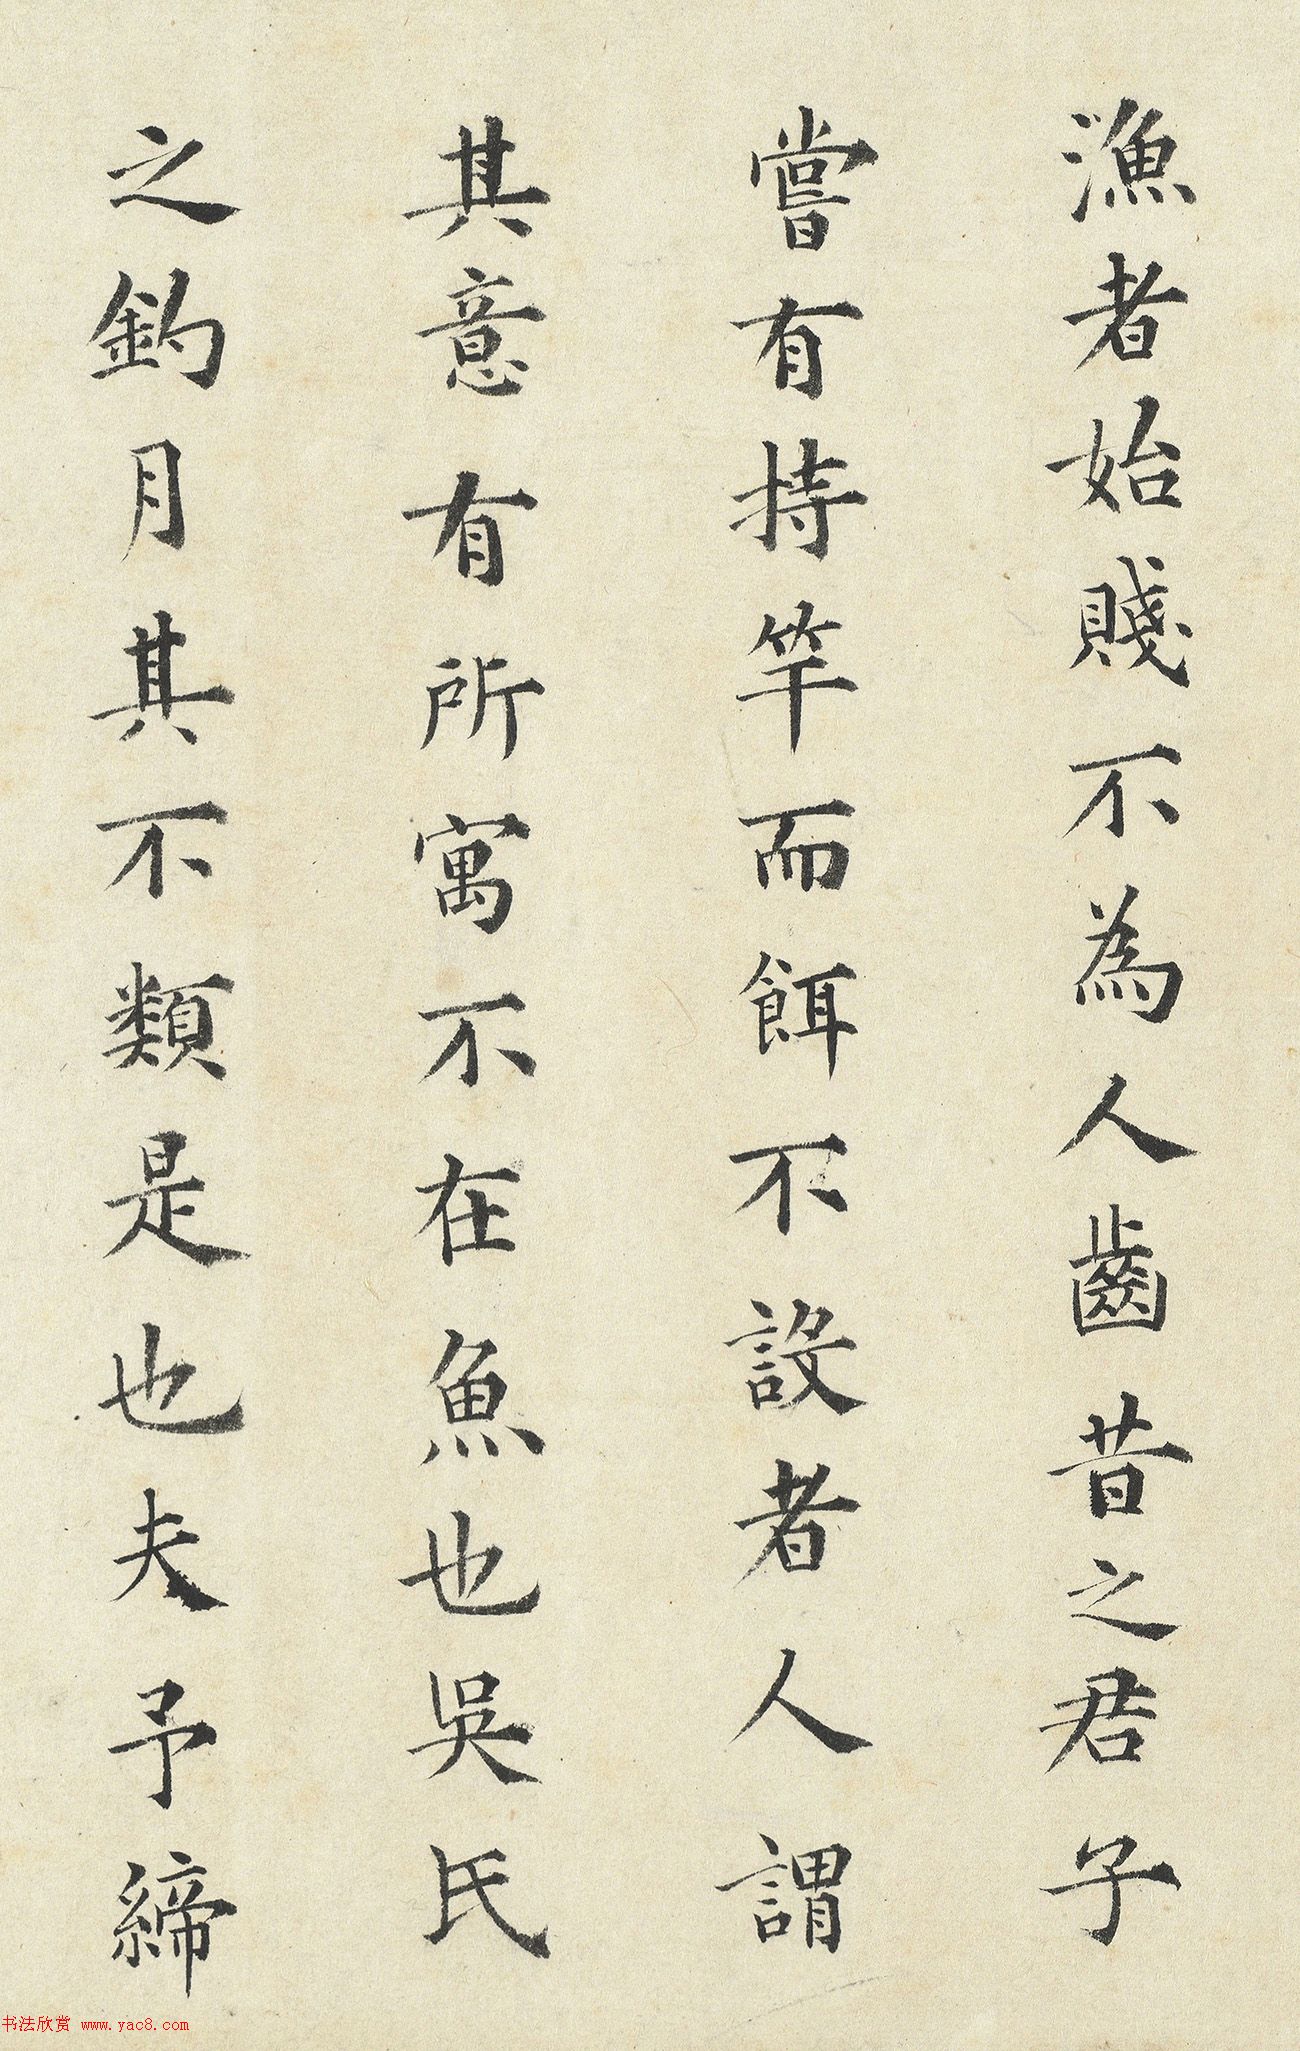 漁者始賤不為人齒昔之君子
嘗有持竿而餌不設者人謂
其意有所寓不在魚也吳氏
之釣月其不類是也夫予締
书法欣赏 www.yac8.com